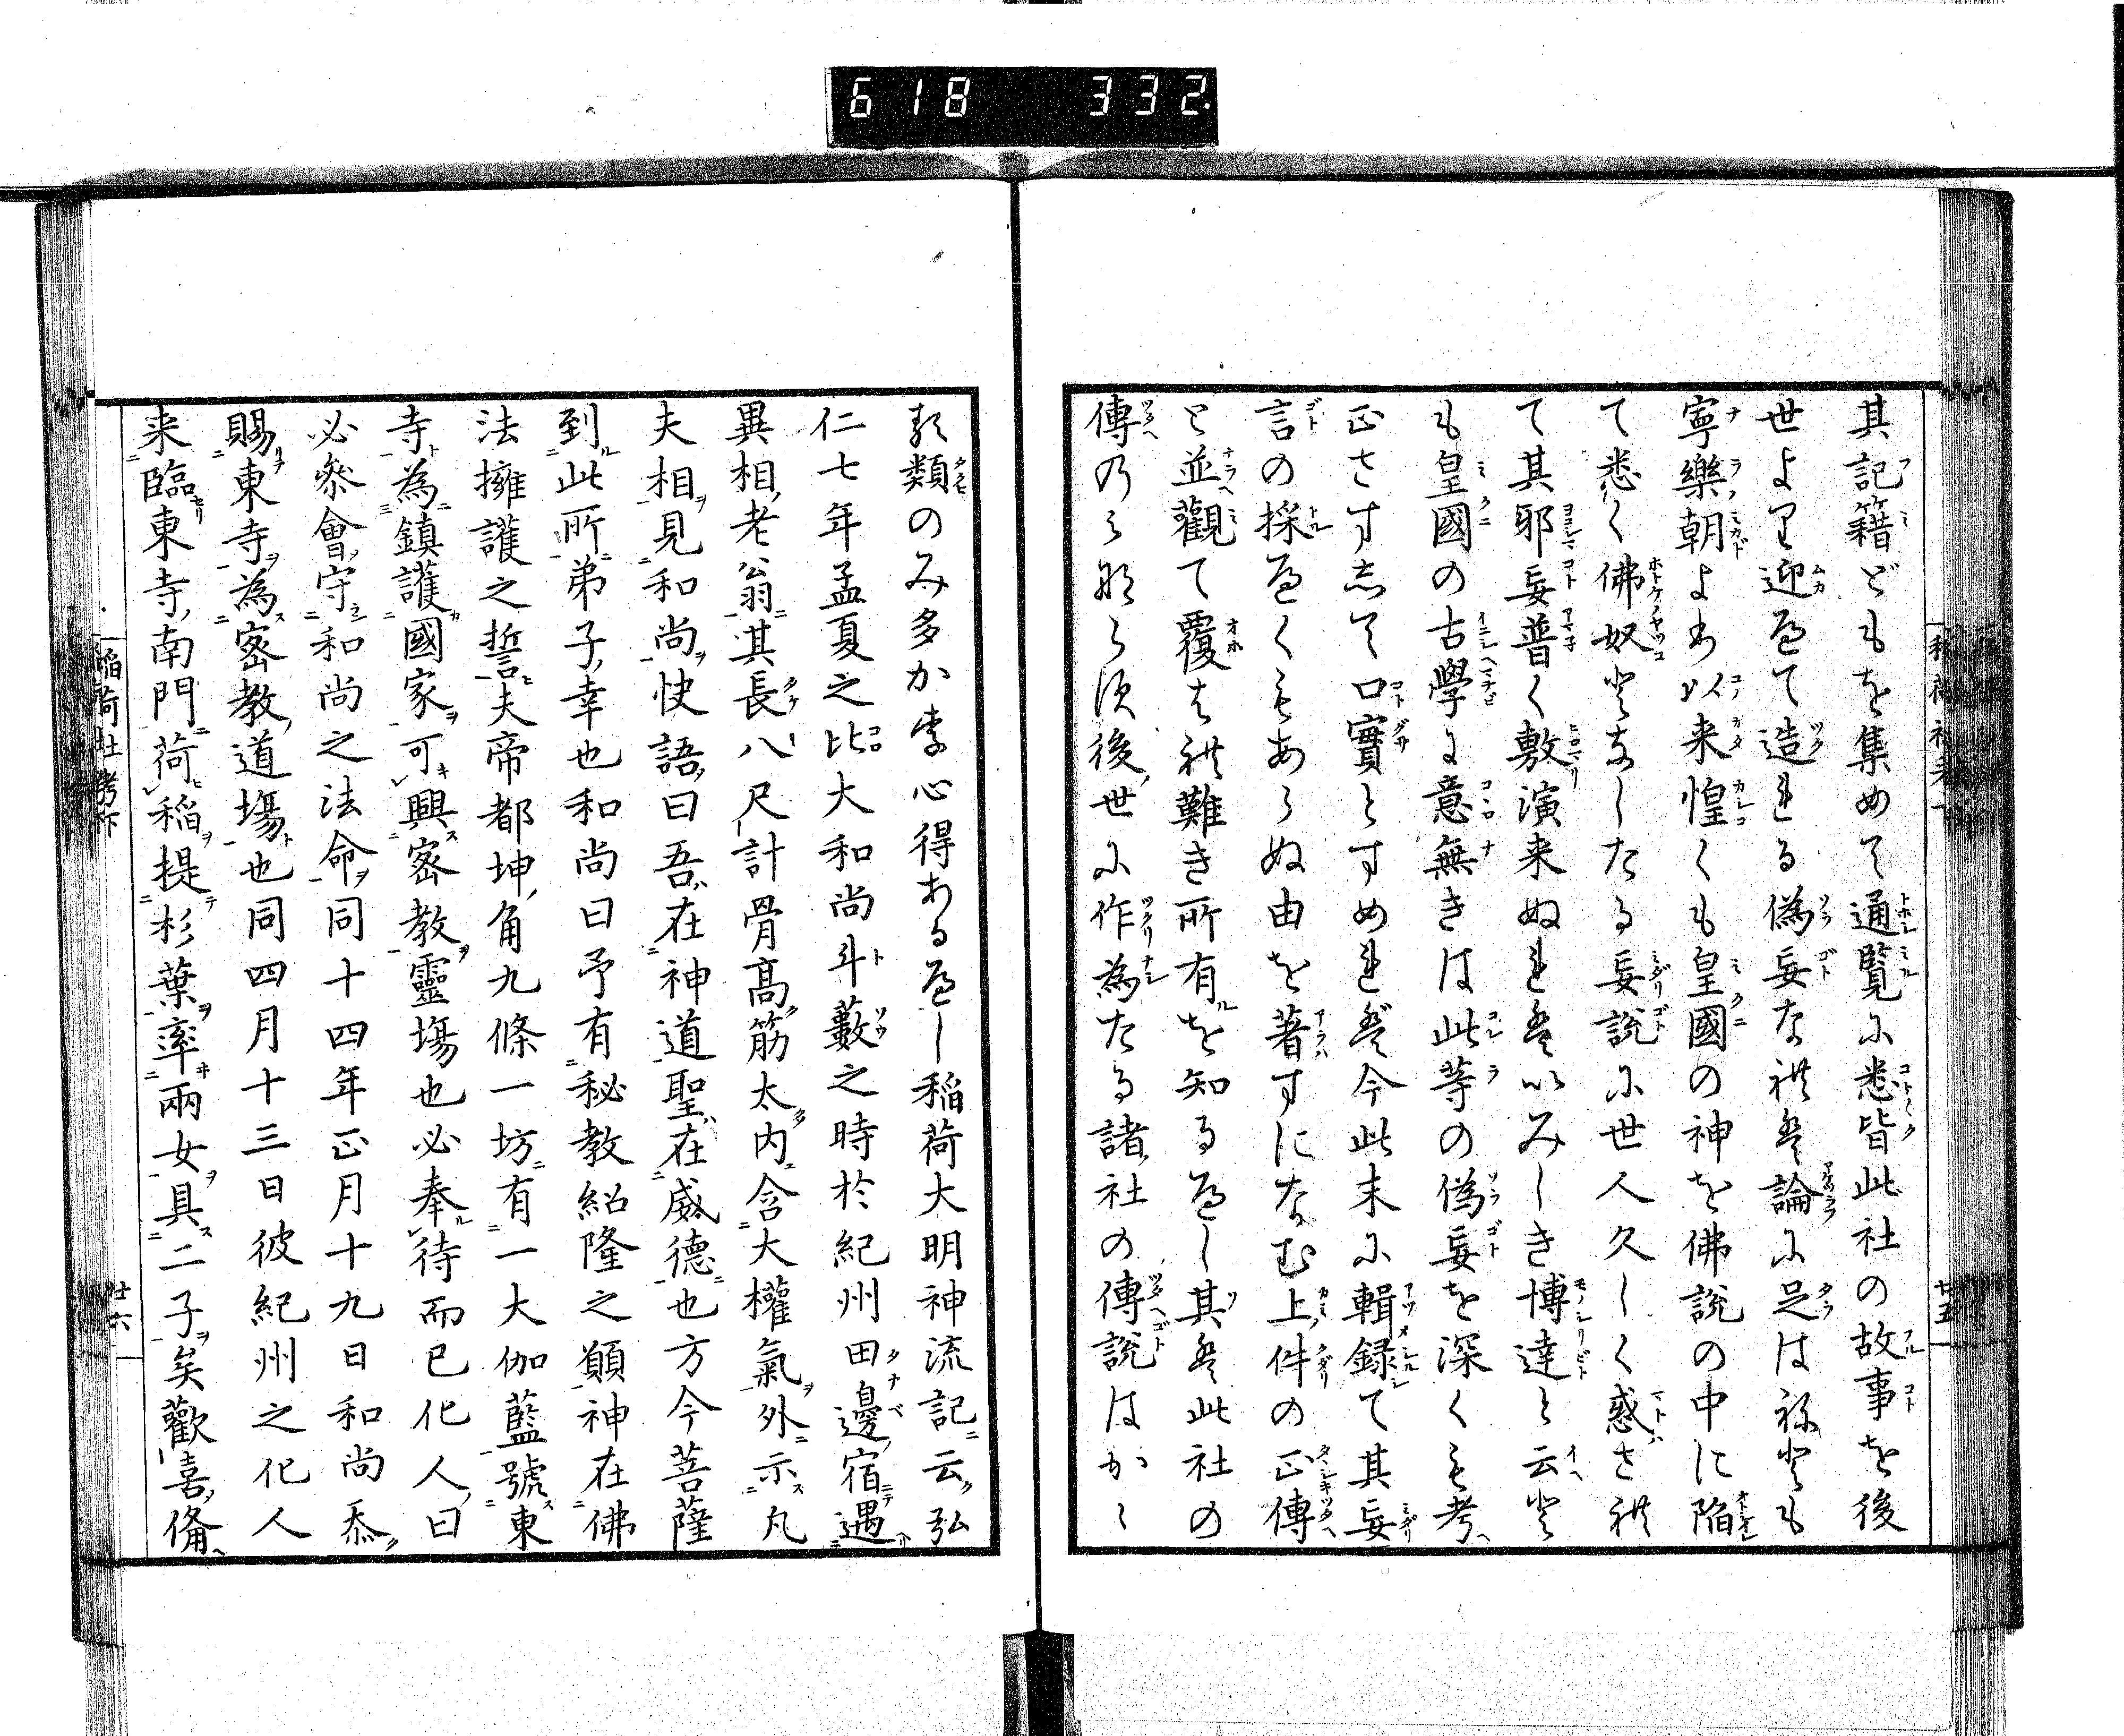 618 332
其記籍どもを集めて通覧に悉皆此社の故事を後
世より迎へて造れる偽妄なれば論に足はねども
寧樂朝より以来惶くも皇國の神を佛説の中に陥
て悉く佛奴となしたる妄説に世人久しく惑され
て其邪妄普く敷演来ぬればいみしき博達と云ど
も皇國の古學に意無きは此等の偽妄を深くも考へ
正さずして口實とすめれば今此末に輯録て其妄
言の採へくもあらぬ由を著すになむ上件の正傳
と並觀て覆はれ難き所有を知るへし其は此社の
傳のみならす後世に作為たる諸社の傳説はかゝ
る類のみ多かり心得あるへし稲荷大明神流記云弘
仁七年孟夏之比大和尚斗藪之時於紀州田邊宿遇
異相老翁其長八尺計骨高筋太内含大權氣外示凡
夫相見和尚快語曰吾在神道聖在威德也方今菩薩
到此所弟子幸也和尚曰予有秘教紹隆之願神在佛
法擁護之誓夫帝都坤角九條一坊有一大伽藍號東
寺為鎮護國家可興密教靈場也必奉待而已化人曰
必參會守和尚之法命同十四年正月十九日和尚忝
賜東寺為密教道場也同四月十三日彼紀州之化人
来臨東寺南門荷稲提杉葉率兩女具二子矣歡喜備
稲荷社考下
廿六
廿五